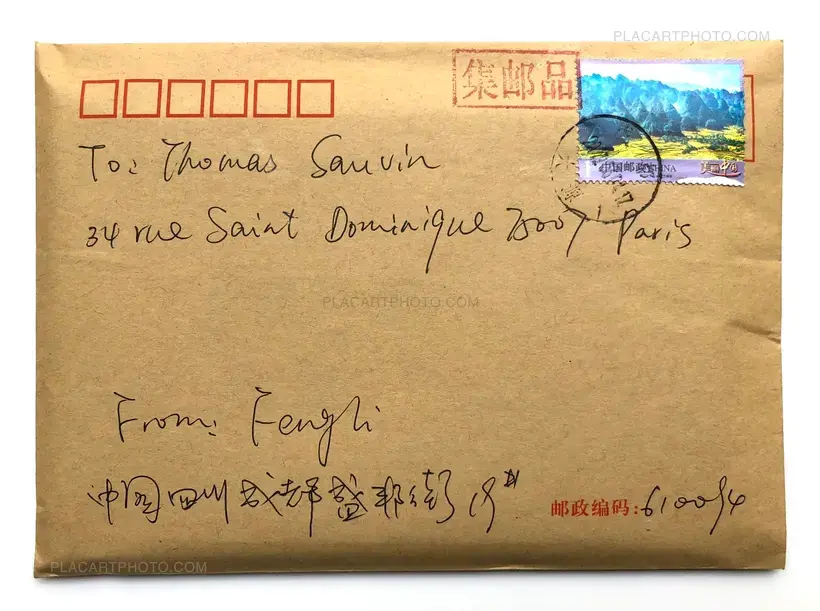 PLACARTPHOTO.COM
集邮品
中国邮政 CHINA
美丽中国
To: Thomas Sauvin
34 rue Saint Dominique 75007 Paris
PLACARTPHOTO.COM
From: Fengli
中国四川成都盛邦街
邮政编码:610094
PLACARTPHOTO.COM